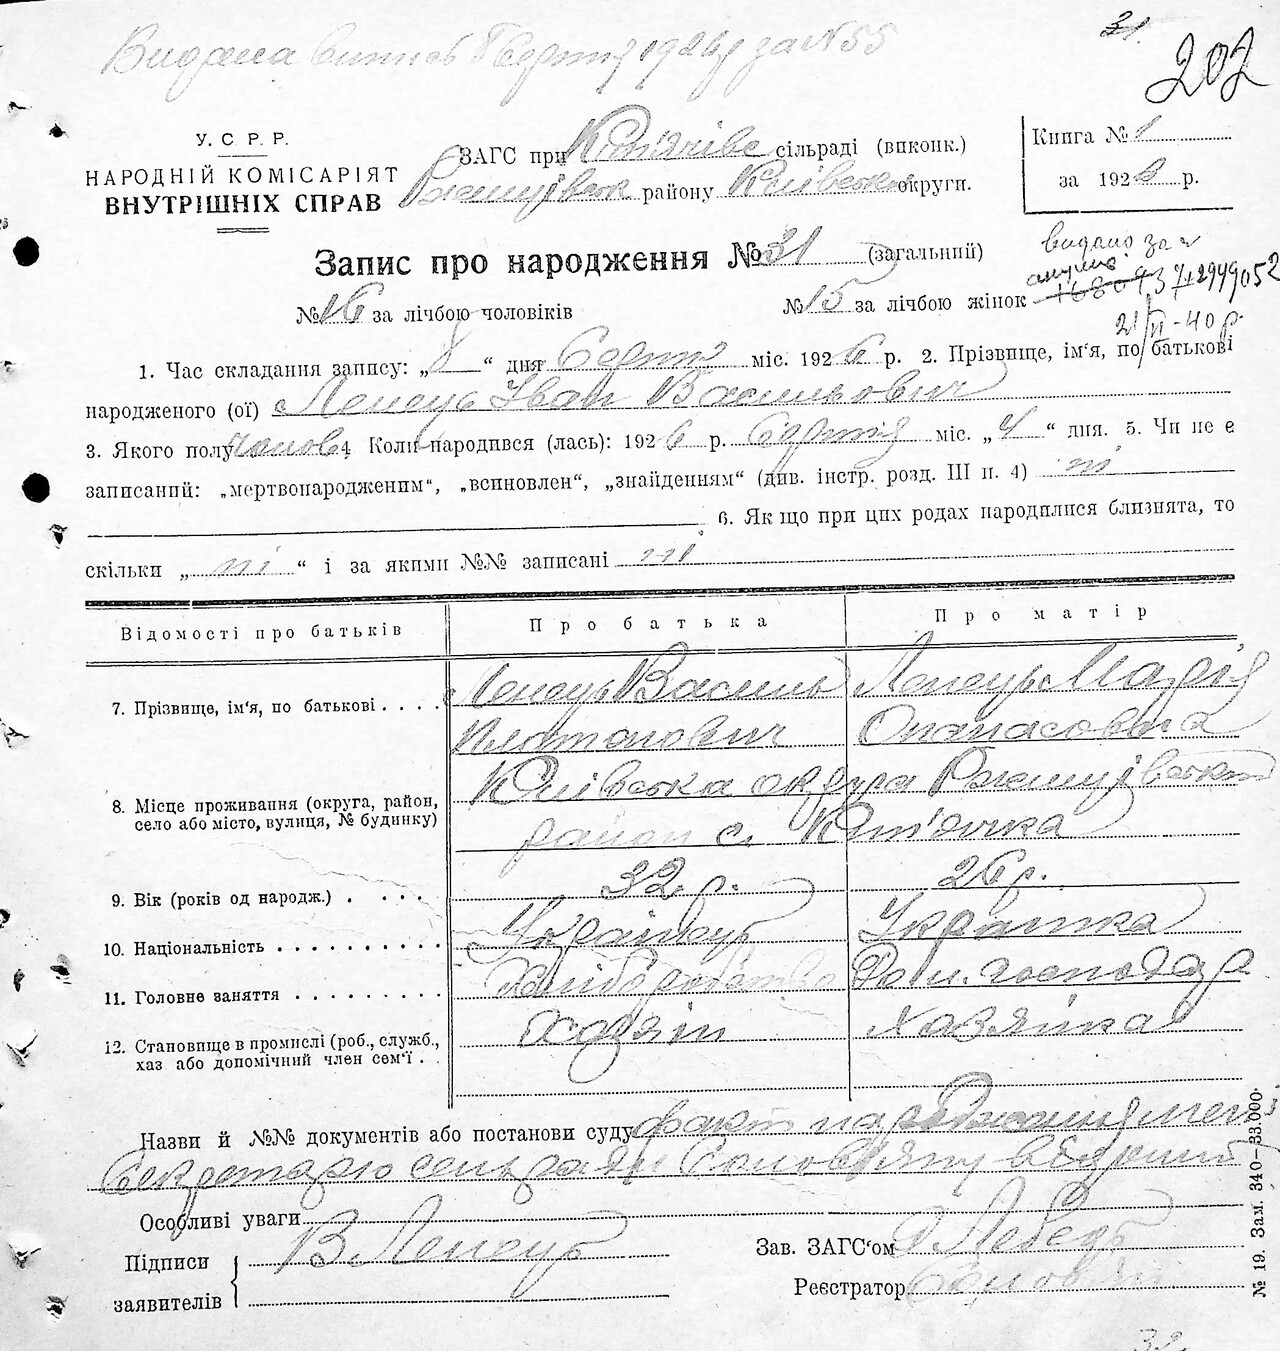 31.
202
Видана витяг 8 серпня 1926 р за N 55
У. С. Р. Р.
НАРОДНІЙ КОМІСАРІЯТ
ВНУТРІШНІХ СПРАВ
ЗАГС при сільраді (виконк.)
району Київської округи.
Книга № 1
за 1926 р.
Запис про народження № 31 (загальний)
видано за
2949052
21/VI-40 р.
№ 16 за лічбою чоловіків № 15 за лічбою жінок
1. Час складання запису: „8“ дня Серпня міс. 1926 р. 2. Прізвище, ім‘я, по батькові
народженого (ої) Лепець Іван Васильович
3. Якого полу чолов 4. Коли народився (лась): 1926 р. Серпня міс. „4“ дня. 5. Чи не є
записаний: „мертвонародженим“, „всиновлен“, „знайденням“ (див. інстр. розд. III п. 4) ні
6. Як що при цих родах народилися близнята, то
скільки „ ні “ і за якими №№ записані ні
Відомості про батьків Про батька Про матір
7. Прізвище, ім‘я, по батькові . . . . Лепець Василь Лепець Марія
Платонович Опанасовна
8. Місце проживання (округа, район, село або місто, вулиця, № будинку) Київська округа Ржищівський
район с. Кип'ячка
9. Вік (років од народж.) . . . . 32 р. 26 р.
10. Національність . . . . . . . . . . Українець Українка
11. Головне заняття . . . . . . . . . Хліборобство Дом. господар
12. Становище в промислі (роб., служб., хаз або допомічний член сем‘ї . . Хазяїн Хазяйка
Назви й №№ документів або постанови суду факт народження мені
Секретарю сельради відомий
Особливі уваги
Підписи
заявителів
В Лепець
Зав. ЗАГС‘ом Лебедь
Реєстратор
№ 19. Зам. 340—33.000.
32